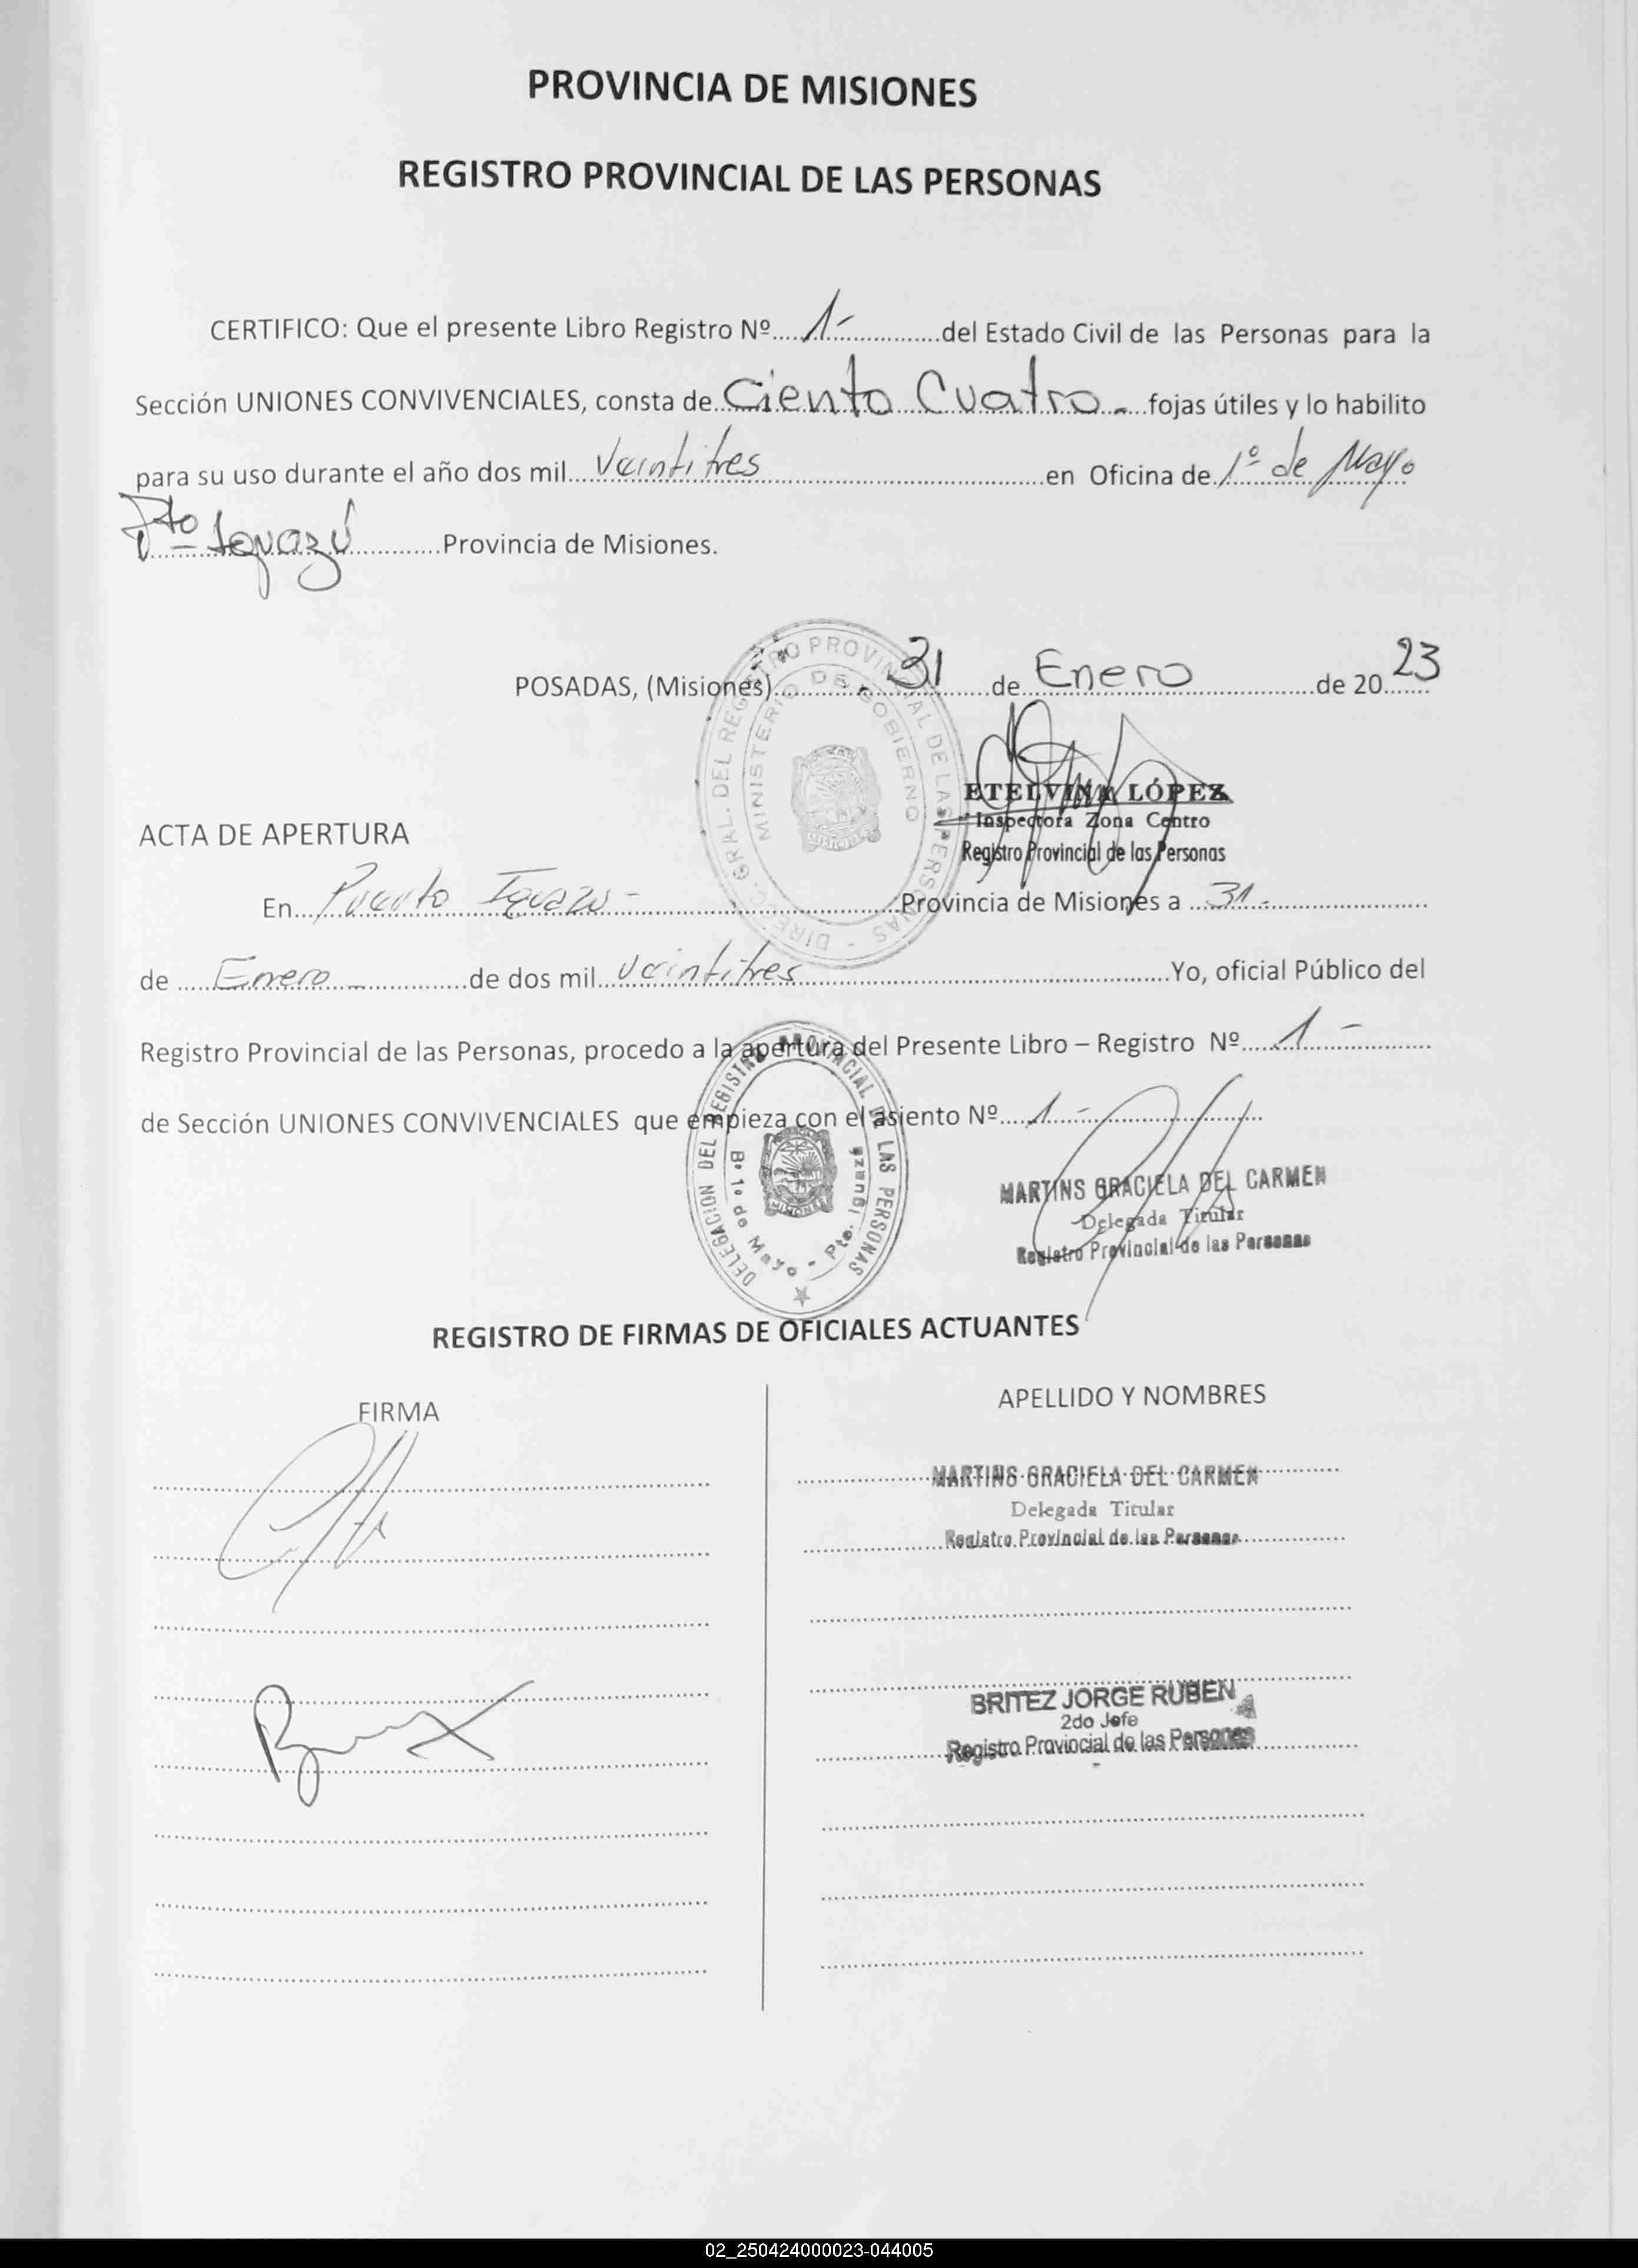 PROVINCIA DE MISIONES
REGISTRO PROVINCIAL DE LAS PERSONAS
CERTIFICO: Que el presente Libro Registro Nº.....1-...............del Estado Civil de las Personas para la
Sección UNIONES CONVIVENCIALES, consta de..Ciento Cuatro-...fojas útiles y lo habilito
para su uso durante el año dos mil....Veintitres..........................................en Oficina de.1º de Mayo
Pto Iguazú.............Provincia de Misiones.
POSADAS, (Misiones)..............31.......de...Enero.....................de 20.23
DIREC. GRAL. DEL REGISTRO PROVINCIAL DE LAS PERSONAS -
MINISTERIO DE GOBIERNO
MISIONES
ETELVINA LÓPEZ
Inspectora Zona Centro
Registro Provincial de las Personas
ACTA DE APERTURA
En...Puerto Iguazu-......................................Provincia de Misiones a ...31-........................
de .....Enero..................de dos mil...veintitres.....................................................Yo, oficial Público del
Registro Provincial de las Personas, procedo a la apertura del Presente Libro – Registro Nº.....1-..............
de Sección UNIONES CONVIVENCIALES que empieza con el asiento Nº.....1-........................
DELEGACION DEL REGISTRO PROVINCIAL DE LAS PERSONAS
Bº 1º de Mayo - Pto. Iguazú
MISIONES
MARTINS GRACIELA DEL CARMEN
Delegada Titular
Registro Provincial de las Personas
REGISTRO DE FIRMAS DE OFICIALES ACTUANTES
FIRMA
APELLIDO Y NOMBRES
MARTINS GRACIELA DEL CARMEN
Delegada Titular
Registro Provincial de las Personas
BRITEZ JORGE RUBEN
2do Jefe
Registro Provincial de las Personas
02_250424000023-044005